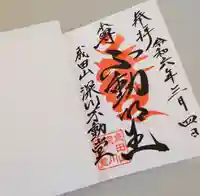 奉拝 令和六年三月四日
不動明王
成田山 深川不動堂